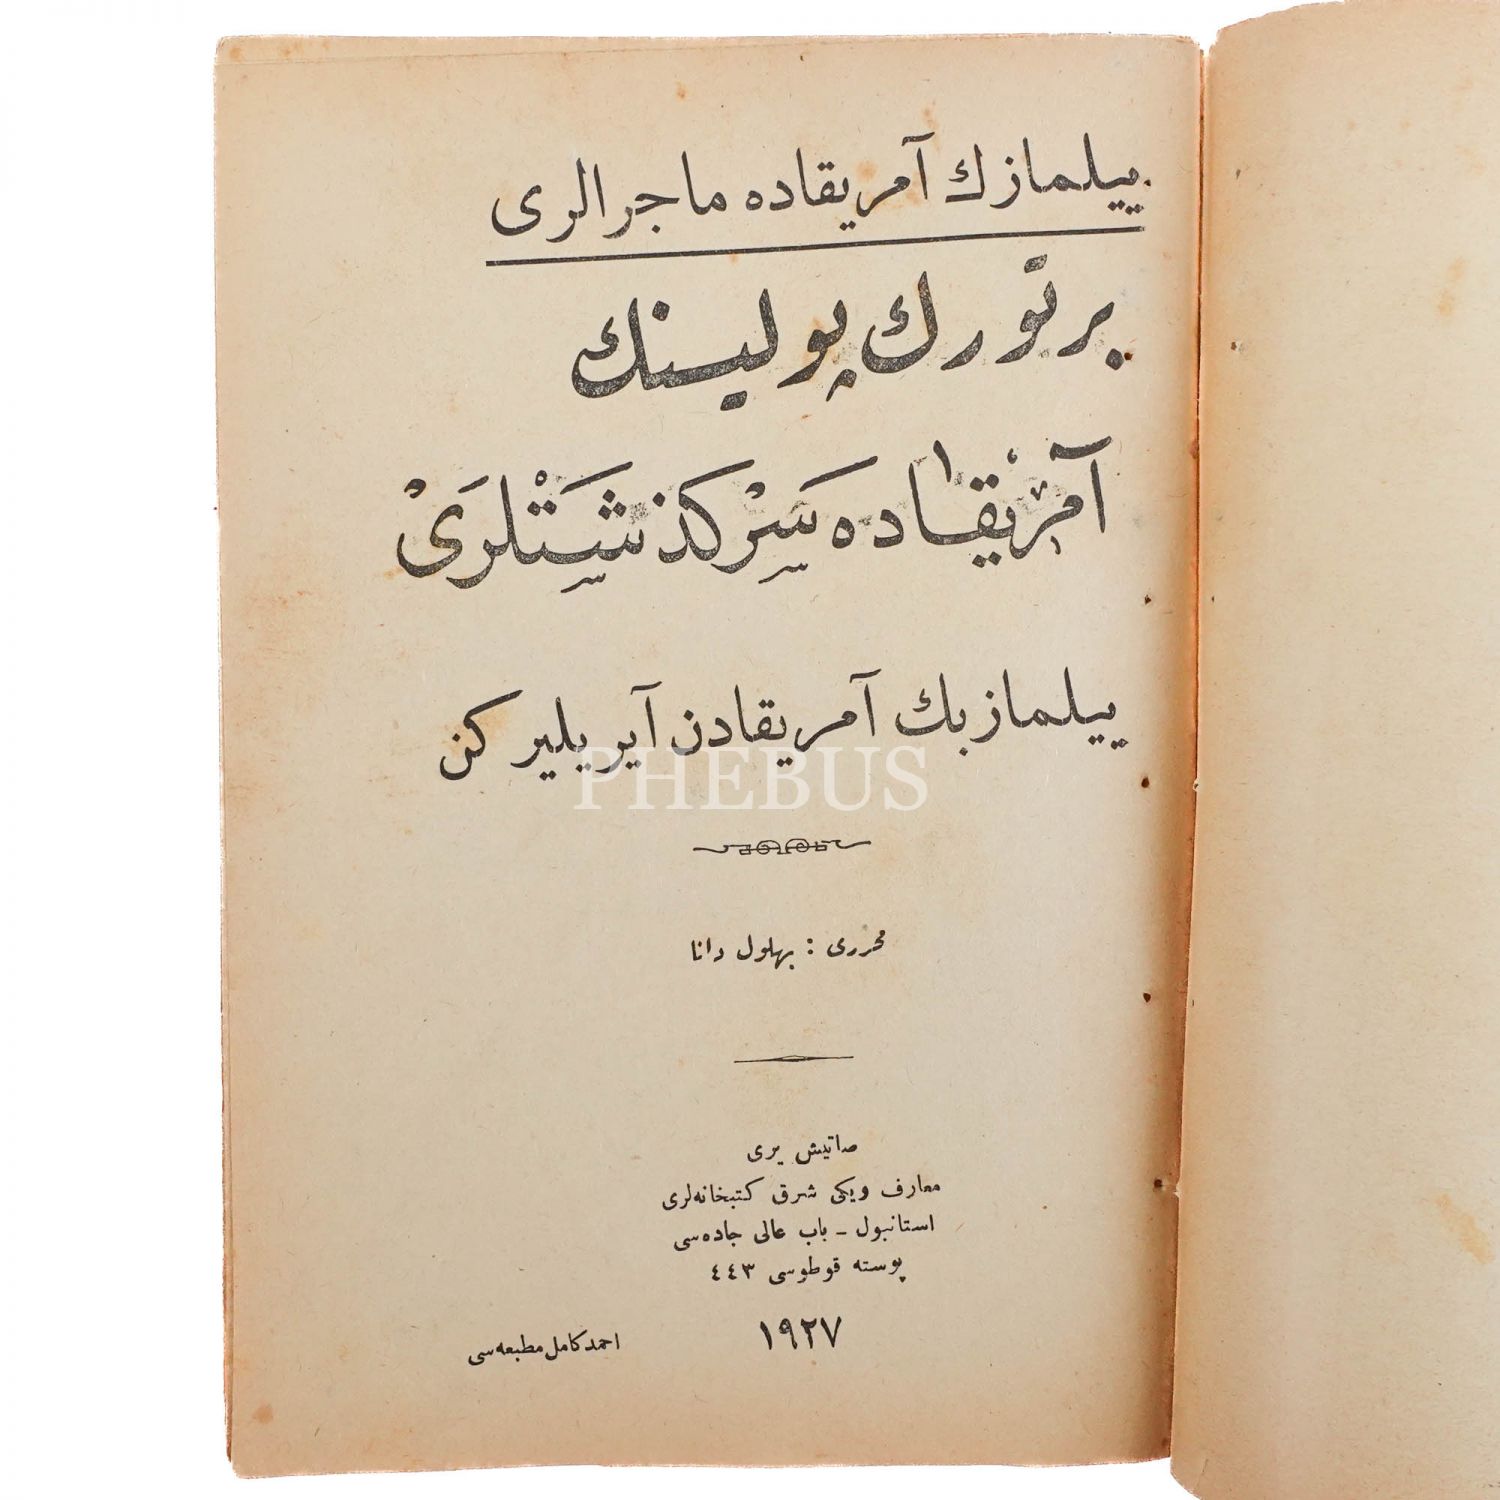 ييلمازك آمريقاده ماجرالرى
بر تورك پوليسنك
آمريقاده سَرْكذشَتْلرَىْ
ييلماز بك آمريقادن آيريليركن
PHEBUS
محررى : بهلول دانا
صاتيش يرى
معارف ويكى شرق كتبخانه‌لرى
استانبول ـ باب عالى جاده‌سى
پوسته قوطوسى ٤٤٣
١٩٢٧
احمد كامل مطبعه‌سى